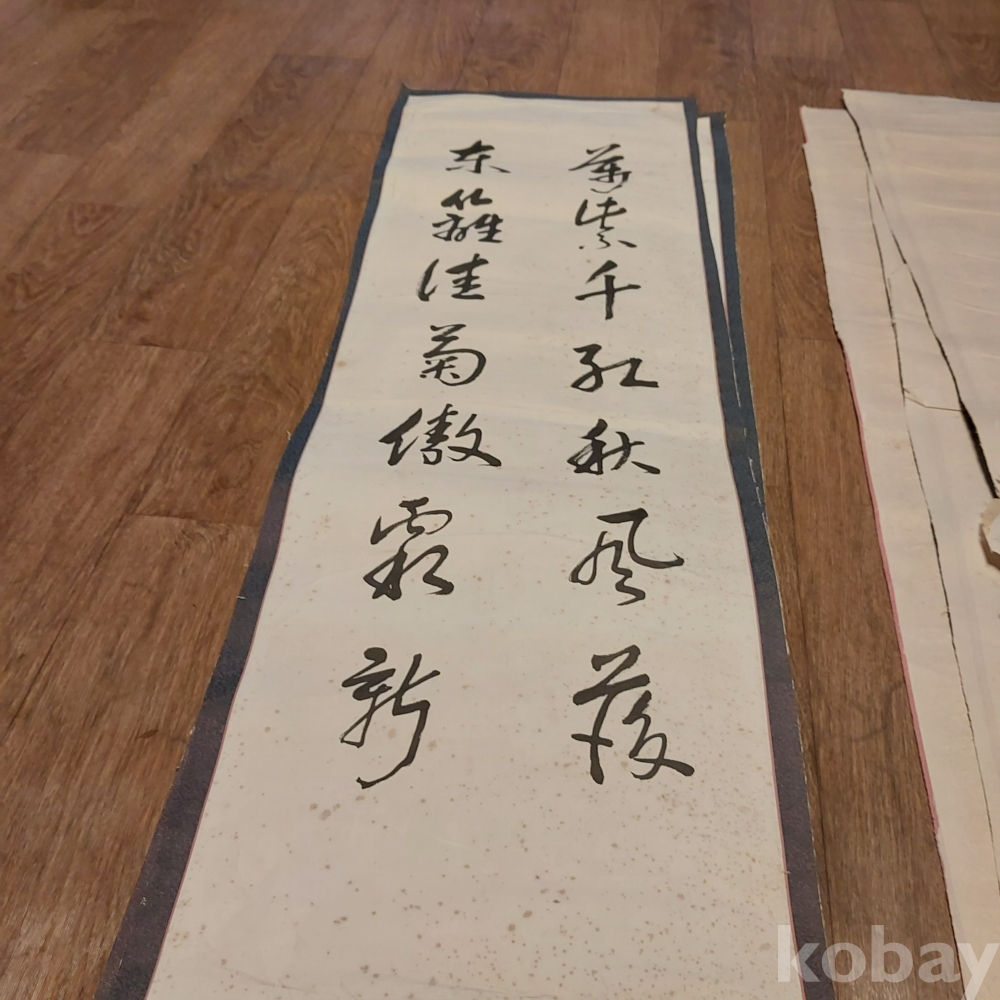 萬紫千紅秋風後
东籬佳菊傲霜新
kobay